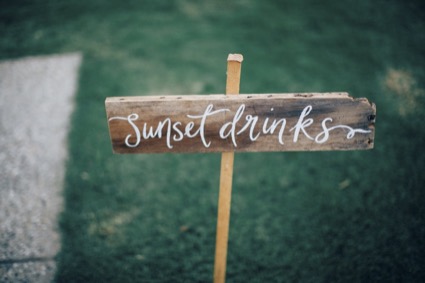 Sunset drinks